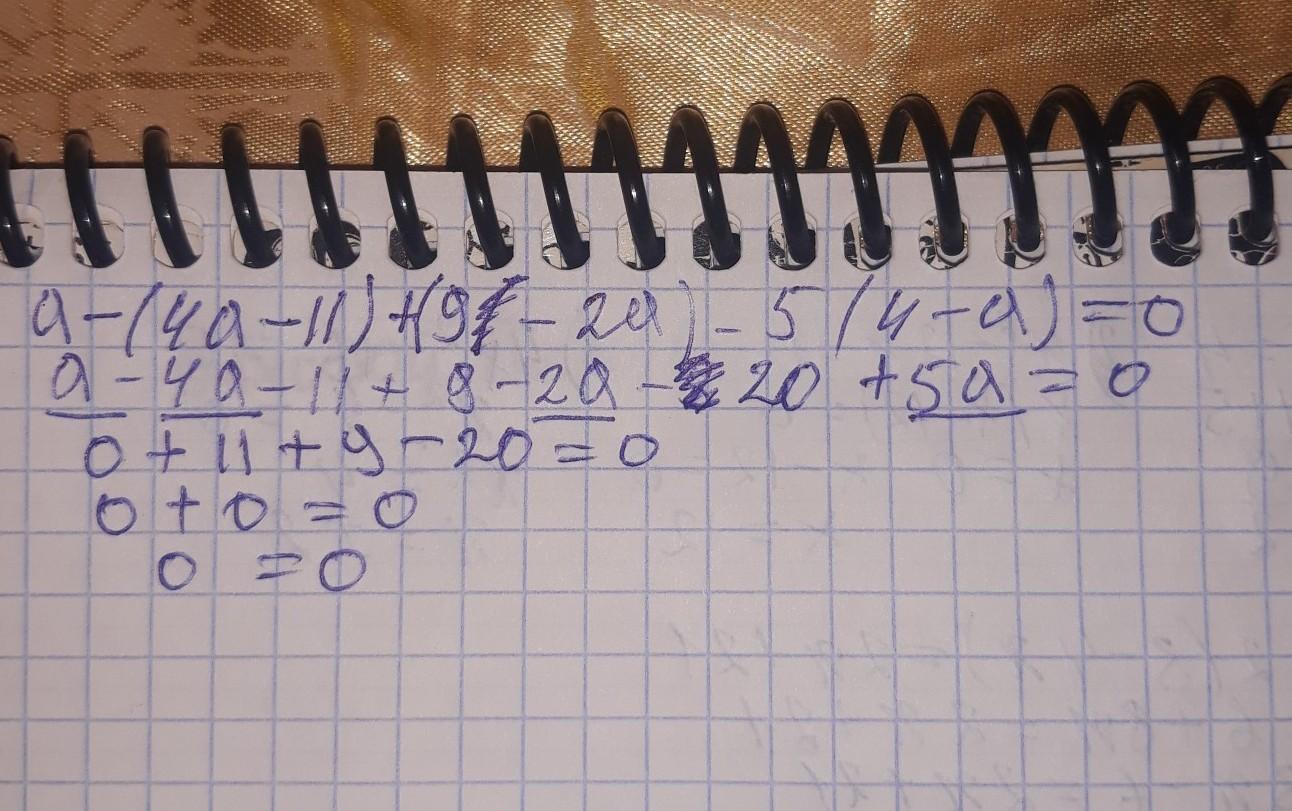 a-(4a-11)+(9-2a)-5(4-a)=0
a-4a-11+9-2a-20+5a=0
0+11+9-20=0
0+0=0
0=0